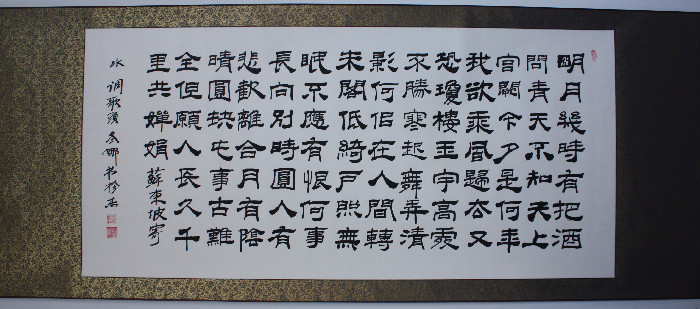 明月幾時有把酒
問青天不知天上
宮闕今夕是何年
我欲乘風歸去又
恐瓊樓玉宇高處
不勝寒起舞弄清
影何似在人間轉
朱閣低綺戶照無
眠不應有恨何事
長向別時圓人有
悲歡離合月有陰
晴圓缺此事古難
全但願人長久千
里共嬋娟 蘇東坡寄
水調歌頭